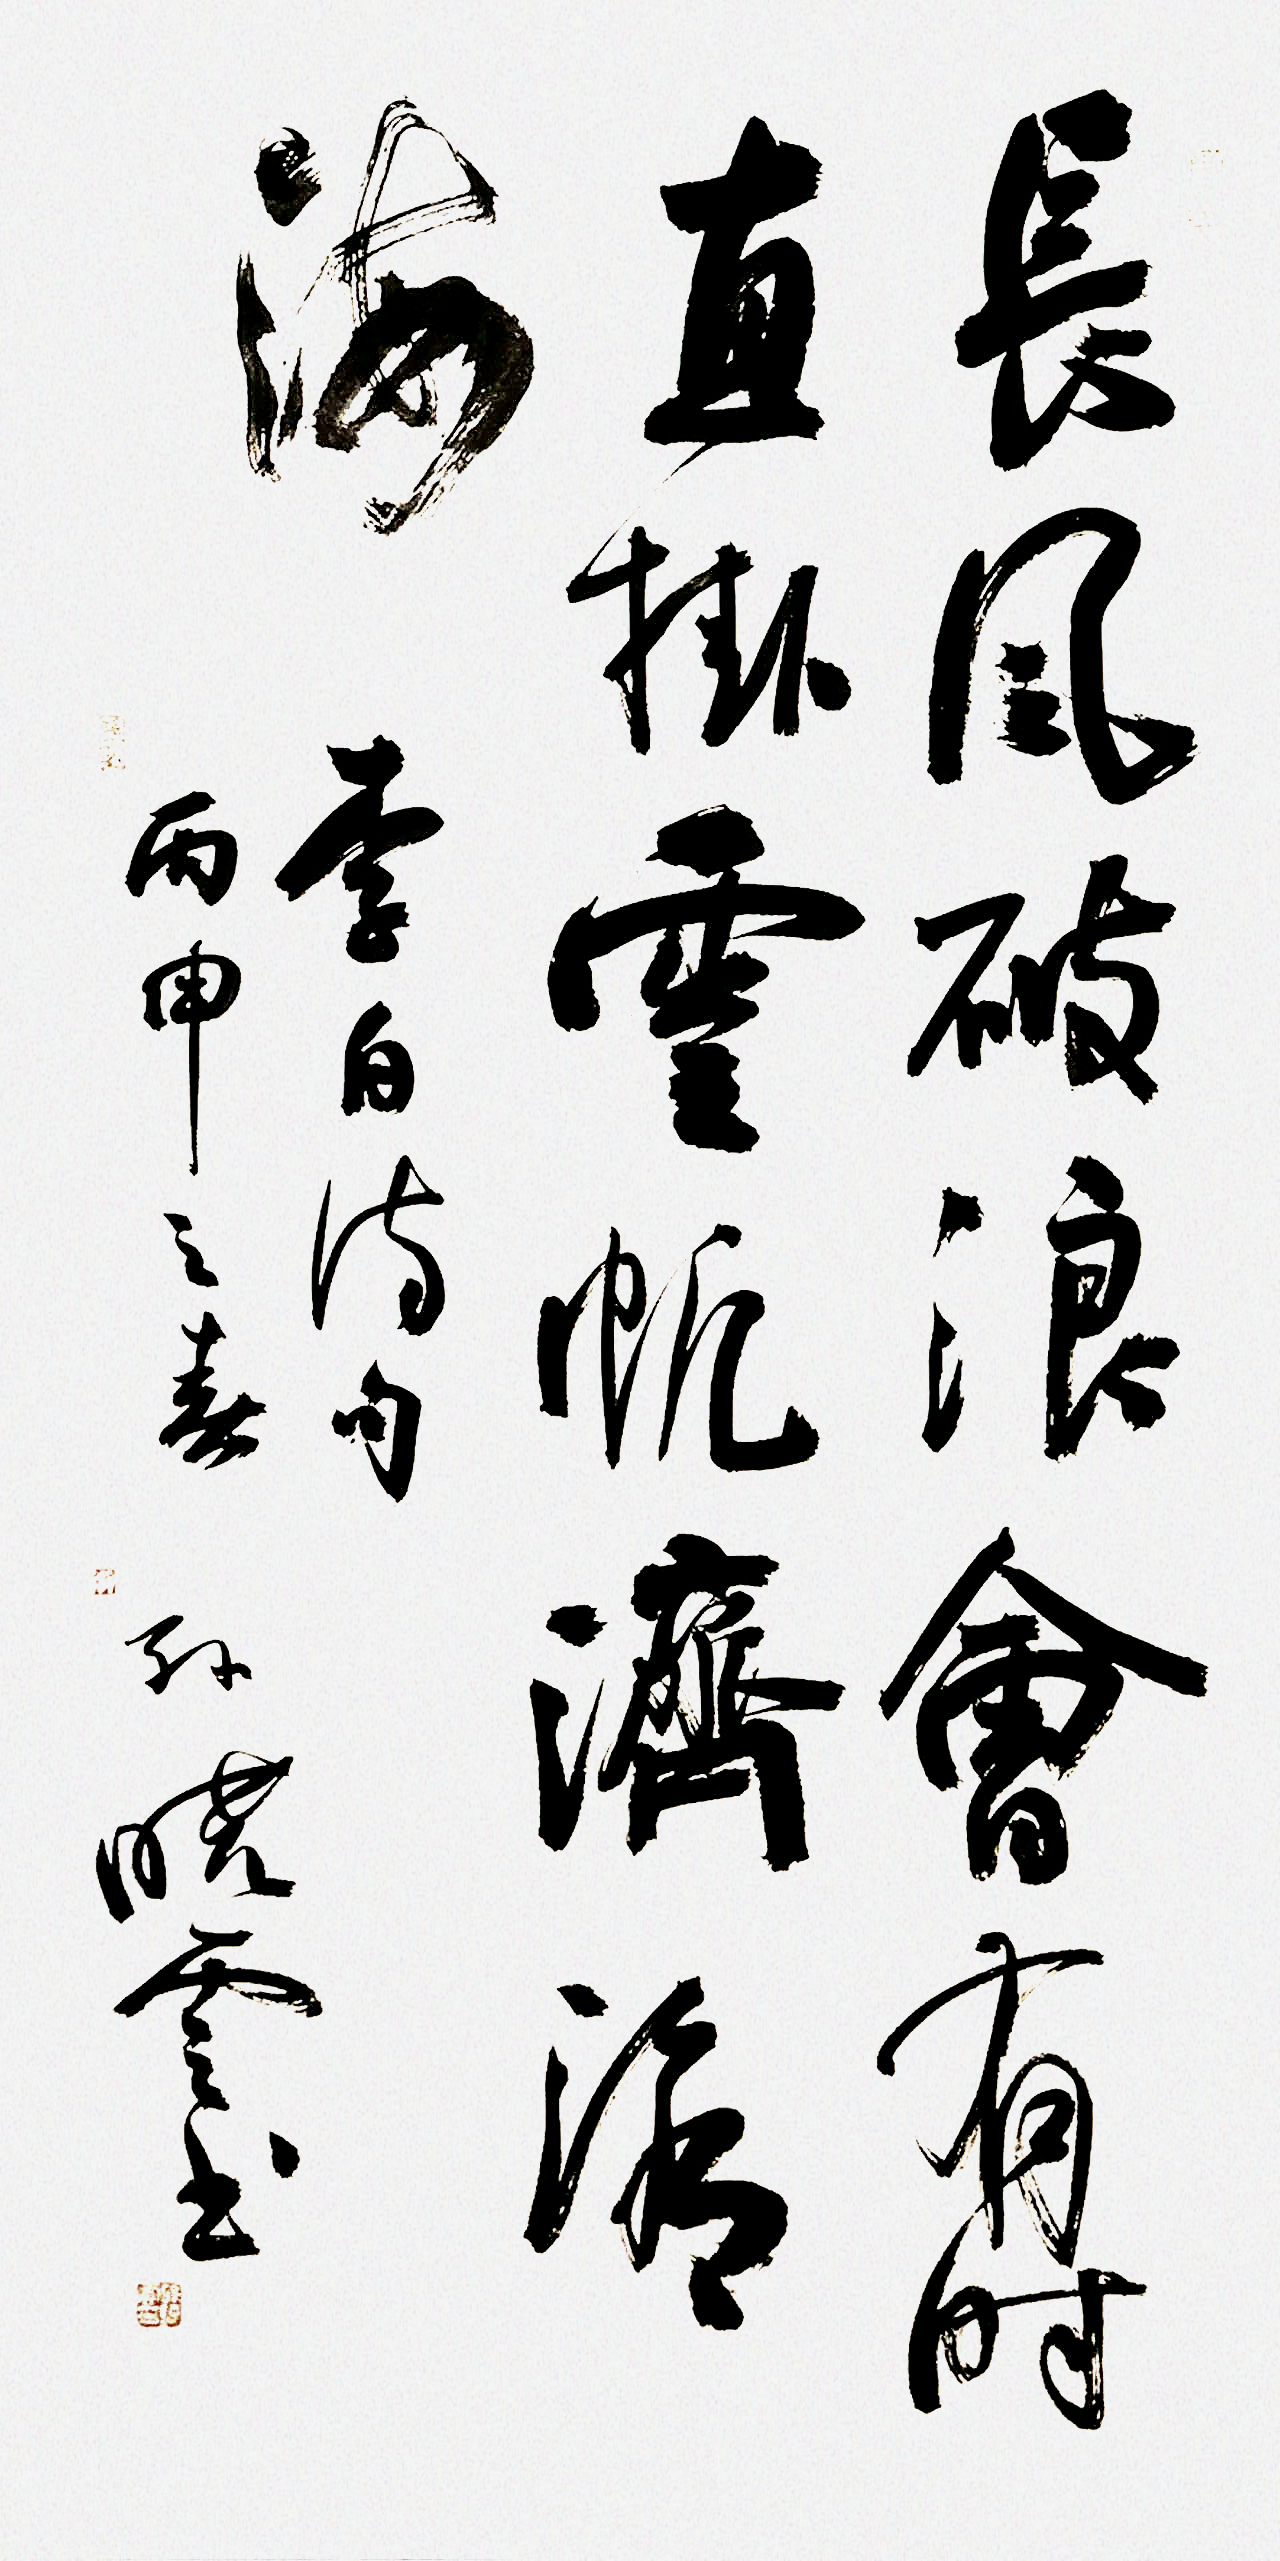 長風破浪會有时
直掛雲帆濟滄
海
李白诗句
丙申之春
孙晓雲书